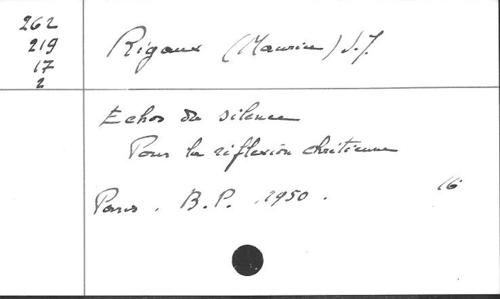 262
219
17
2
Rigaux (Maurice) S.J.
Echos du silence
Pour la réflexion chrétienne
Paris. B.P. 1950. 16